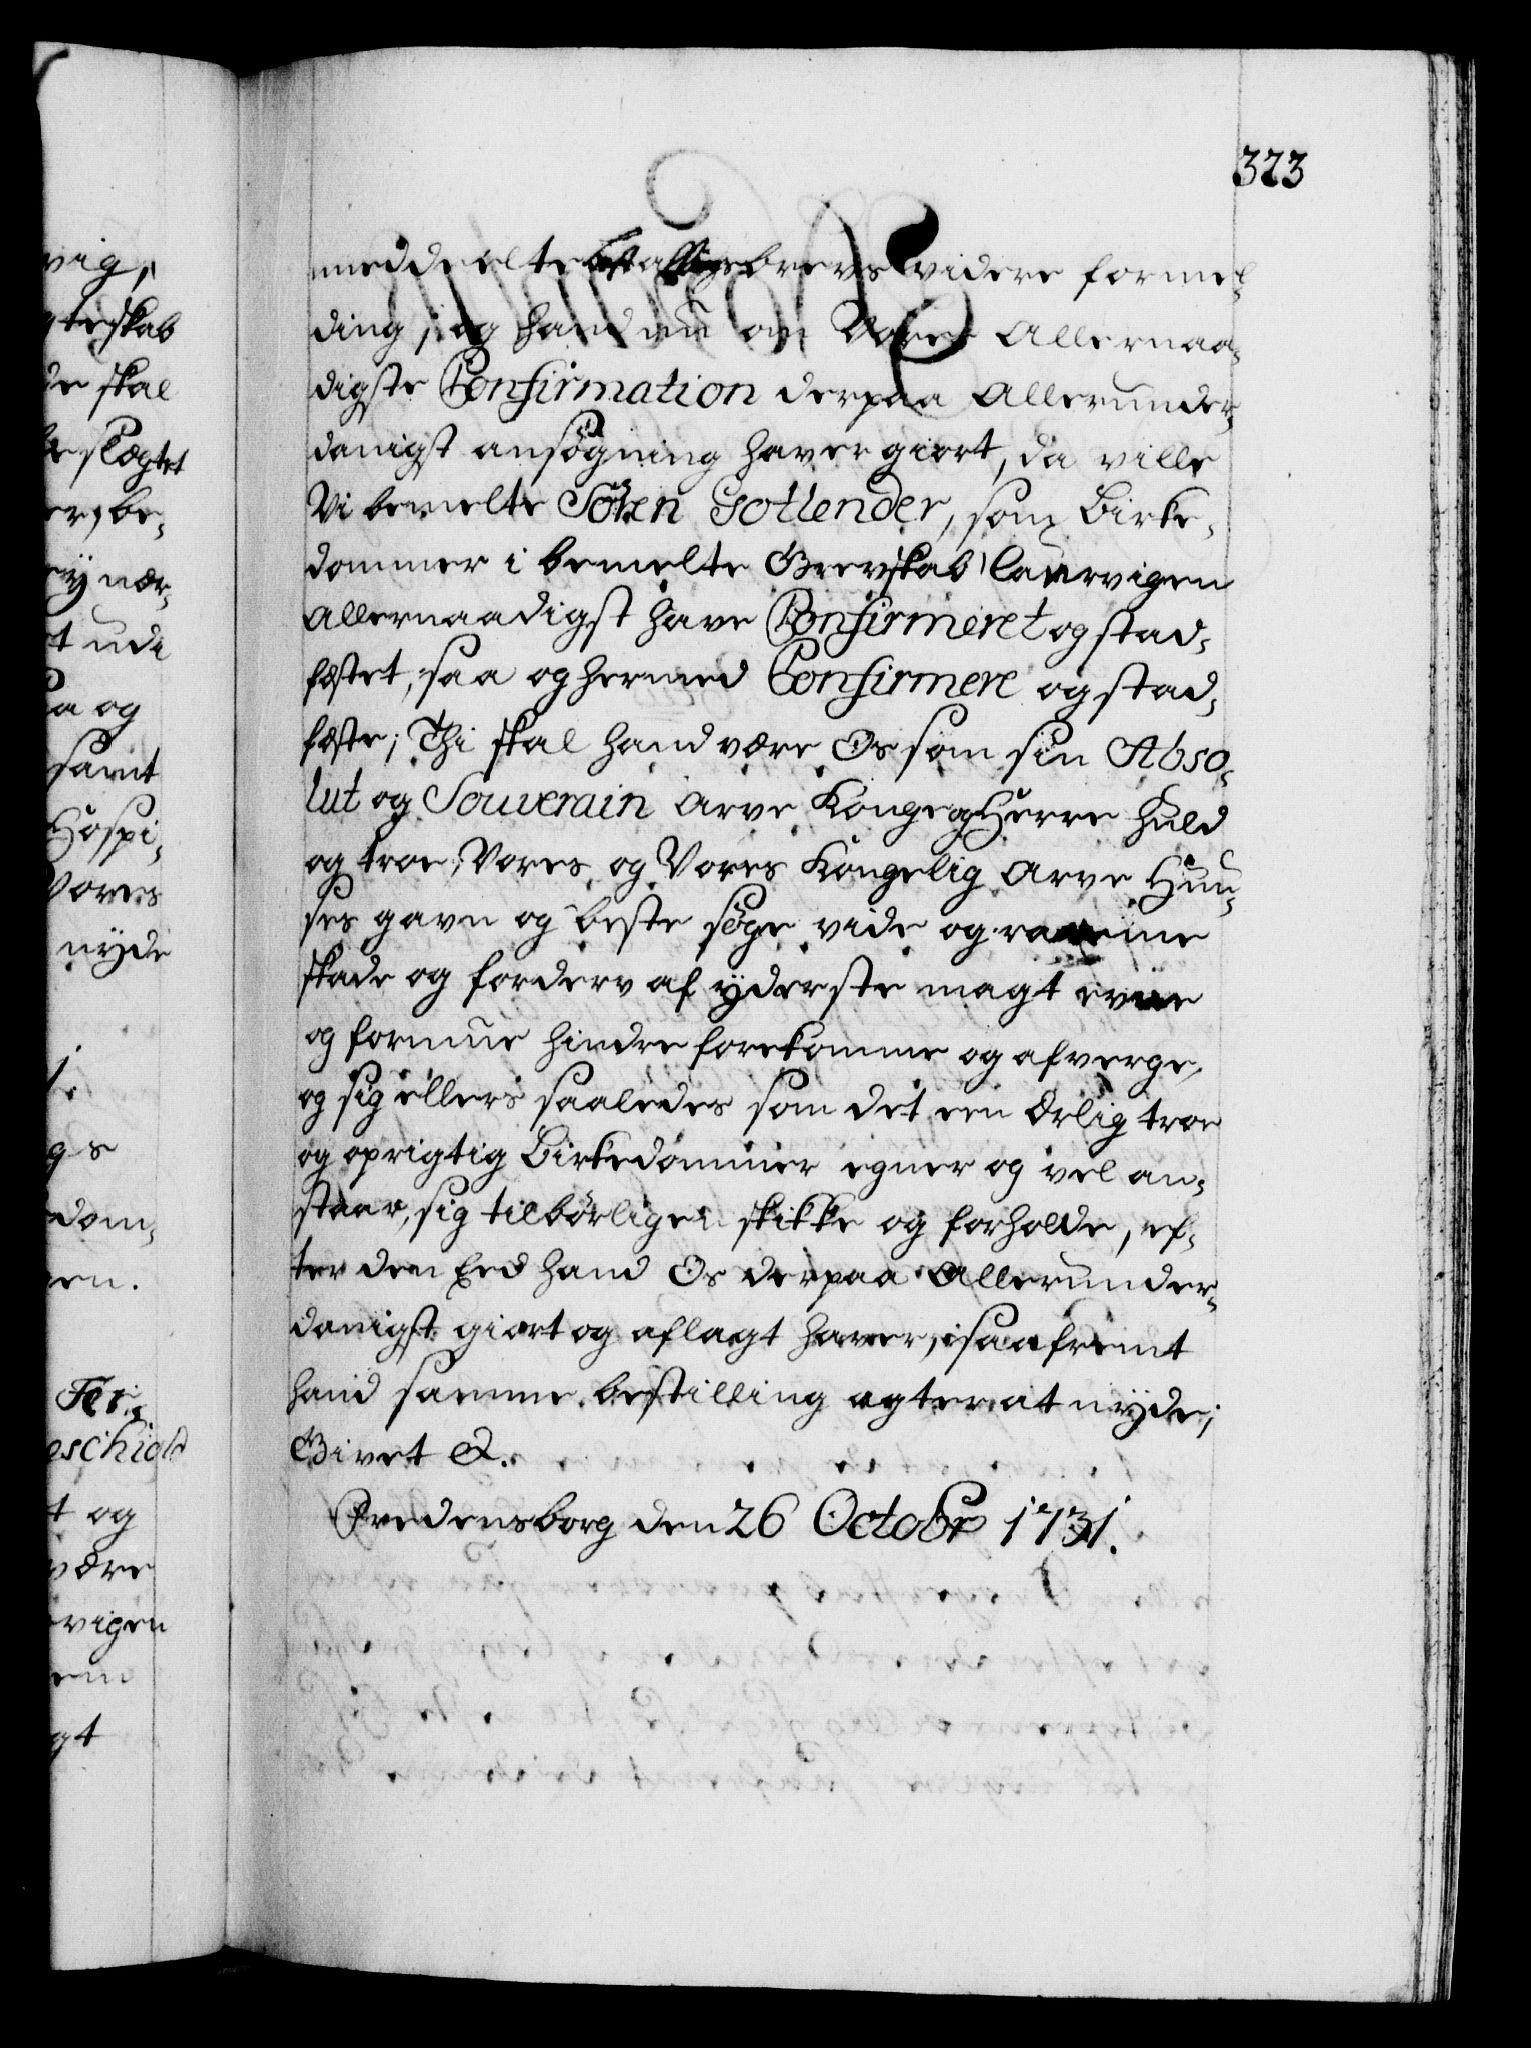 323
meddeelte bestallings brevs videre formel-
ding, og hand nu om Vores Allernaa-
digste Confirmation derpaa Allerunder-
danigst ansøgning haver giort, da ville
Vi bemelte Sören Gotlender, som Birke-
dommer i bemelte Grevskab Laurvigen
Allernaadigst have Confirmeret og stad-
fæstet, saa og hermed Confirmere og stad-
fæste; Thi skal hand være Os som sin Abso-
lut og Souverain Arve Konge og Herre huld
og troe, Vores og Vores Kongelig Arve Huu-
ses gavn og beste søge vide og ramme
skade og forderv af yderste magt evne
og formue hindre forekomme og afverge,
og sig ellers saaledes som det een ærlig troe
og oprigtig Birkedommer egner og vel an-
staar, sig tilbørligen skikke og forholde, ef-
ter den Eed hand Os derpaa Allerunder-
danigst giort og aflagt haver, isaafremt
hand samme bestilling agter at nyde;
Givet &.
Fredensborg den 26 Octobr 1731.
vig,
gteskab
de skal
beslægtet
er, be-
ey nær-
t udi
a og
samt
Hospi-
Vores
nyde
gs
dom-
en.
Fer-
eschiold
t og
være
rvigen
em
gt